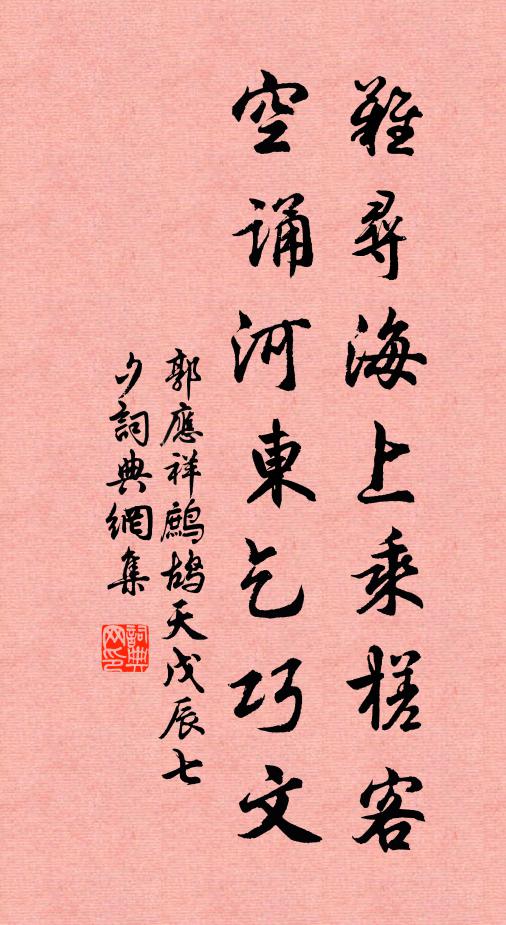 難尋海上乘槎客
空誦河東乞巧文
郭應祥鷓鴣天戊辰七
夕詞典網集
詞典
网印